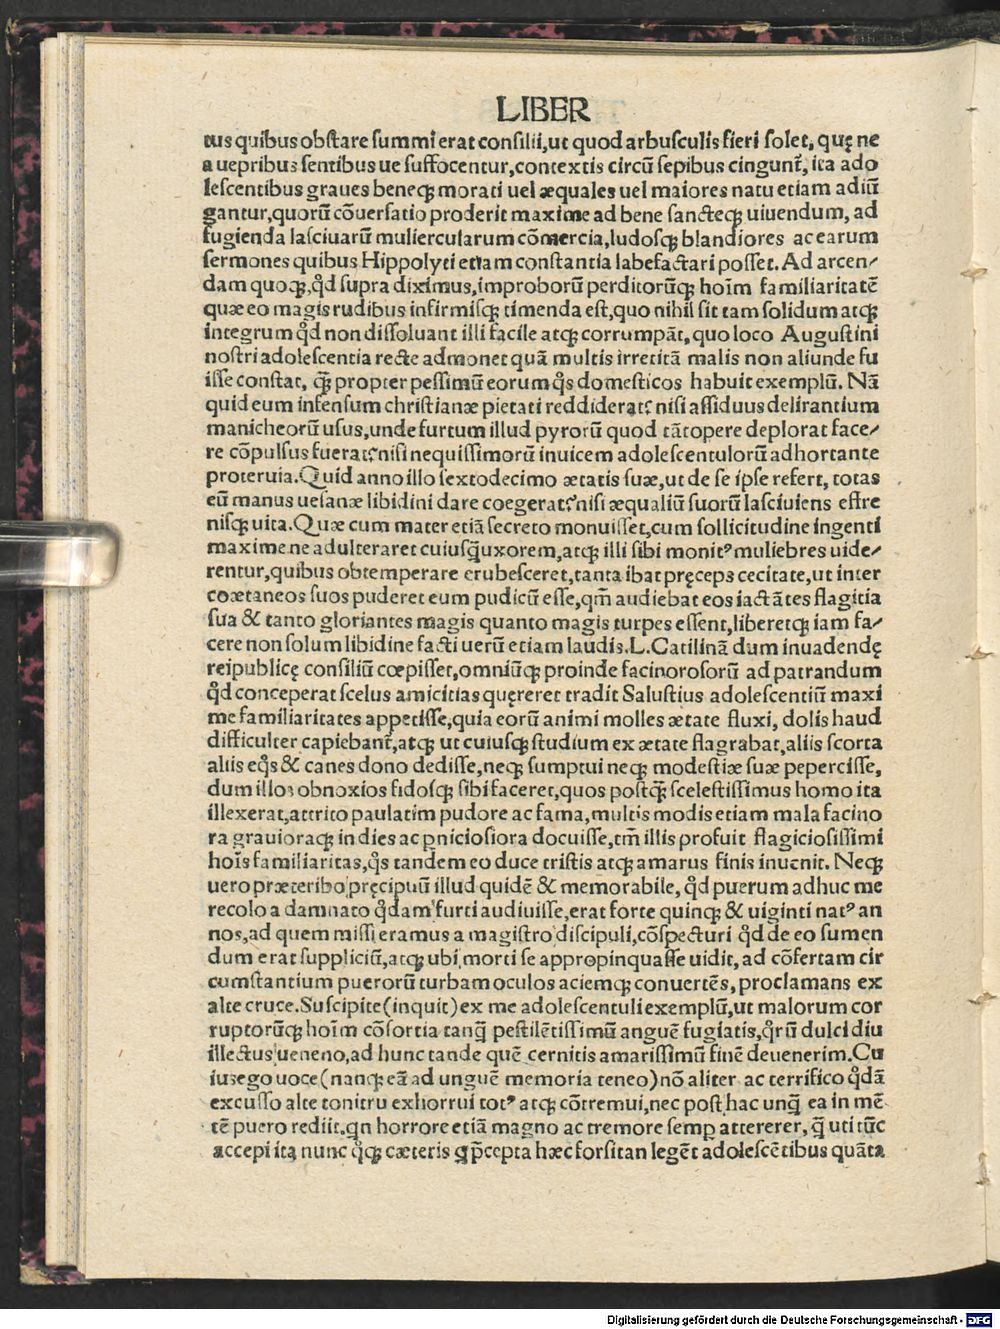 LIBER
tus quibus obstare summi erat consilii,ut quod arbusculis fieri solet, quę ne
a uepribus sentibus ue suffocentur,contextis circū sepibus cingunt̄, ita ado
lescentibus graues beneq; morati uel æquales uel maiores natu etiam adiū
gantur,quorū cōuersatio proderit maxime ad bene sancteq; uiuendum, ad
fugienda lasciuarū muliercularum cōmercia,ludosq; blandiores ac earum
sermones quibus Hippolyti etiam constantia labefactari posset. Ad arcen⸗
dam quoq;,q̊d supra diximus,improborū perditorūq; hoīm familiaritatē
quæ eo magis rudibus infirmisq; timenda est,quo nihil sit tam solidum atq;
integrum q̊d non dissoluant illi facile atq; corrumpāt, quo loco Augustini
nostri adolescentia recte admonet quā multis irretitā malis non aliunde fu
isse constat, q̄ꝫ propter pessimū eorum q̊s domesticos habuit exemplū. Nā
quid eum infensum christianæ pietati reddiderat? nisi assiduus delirantium
manicheorū usus,unde furtum illud pyrorū quod tātopere deplorat face⸗
re cōpulsus fuerat? nisi nequissimorū inuicem adolescentulorū adhortante
proteruia.Quid anno illo sextodecimo ætatis suæ,ut de se ipse refert, totas
eū manus uesanæ libidini dare coegerat? nisi æqualiū suorū lasciuiens effre
nisq; uita.Quæ cum mater etiā secreto monuisset,cum sollicitudine ingenti
maxime ne adulteraret cuiusq̄uxorem,atq; illi sibi monitꝰ muliebres uide⸗
rentur,quibus obtemperare erubesceret,tanta ibat pręceps cecitate,ut inter
coætaneos suos puderet eum pudicū esse,qm̄ audiebat eos iactātes flagitia
sua & tanto gloriantes magis quanto magis turpes essent,liberetq; iam fa⸗
cere non solum libidine facti uerū etiam laudis.L.Catilinā dum inuadendę
reipublicę consiliū cœpisset,omniūq; proinde facinorosorū ad patrandum
q̊d conceperat scelus amicitias quęreret tradit Salustius adolescentiū maxi
me familiaritates appetisse,quia eorū animi molles ætate fluxi, dolis haud
difficulter capiebant̄,atq; ut cuiusq; studium ex ætate flagrabat,aliis scorta
aliis eq̊s & canes dono dedisse,neq; sumptui neq; modestiæ suæ pepercisse,
dum illos obnoxios fidosq; sibi faceret,quos postq̄ꝫ scelestissimus homo ita
illexerat,attrito paulatim pudore ac fama,multis modis etiam mala facino
ra grauioraq; in dies ac ꝑniciosiora docuisse,tm̄ illis profuit flagiciosissimi
hoīs familiaritas,q̊s tandem eo duce tristis atq; amarus finis inuenit. Neq;
uero præteribo pręcipuū illud quidē & memorabile, q̊d puerum adhuc me
recolo a damnato q̊dam furti audiuisse,erat forte quinq; & uiginti natꝰ an
nos,ad quem missi eramus a magistro discipuli,cōspecturi q̊d de eo sumen
dum erat suppliciū,atq; ubi morti se appropinquasse uidit, ad cōfertam cir
cumstantium puerorū turbam oculos aciemq; conuertēs, proclamans ex
alte cruce.Suscipite(inquit)ex me adolescentuli exemplū,ut malorum cor
ruptorūq; hoīm cōsortia tanq̄ pestilētissimū anguē fugiatis,q̊rū dulci diu
illectus ueneno,ad hunc tande quē cernitis amarissimū finē deuenerim.Cu
ius ego uoce(nanq; eā ad unguē memoria teneo)nō aliter ac terrifico q̊dā
excusso alte tonitru exhorrui totꝰ atq; cōtremui,nec post hac unq̄ ea in mē
tē puero rediit.qn horrore etiā magno ac tremore semꝑ attererer, q̄ uti tūc
accepi ita nunc q̊q; cæteris ꝙ p̄cepta hæc forsitan legēt adolescētibus quāta